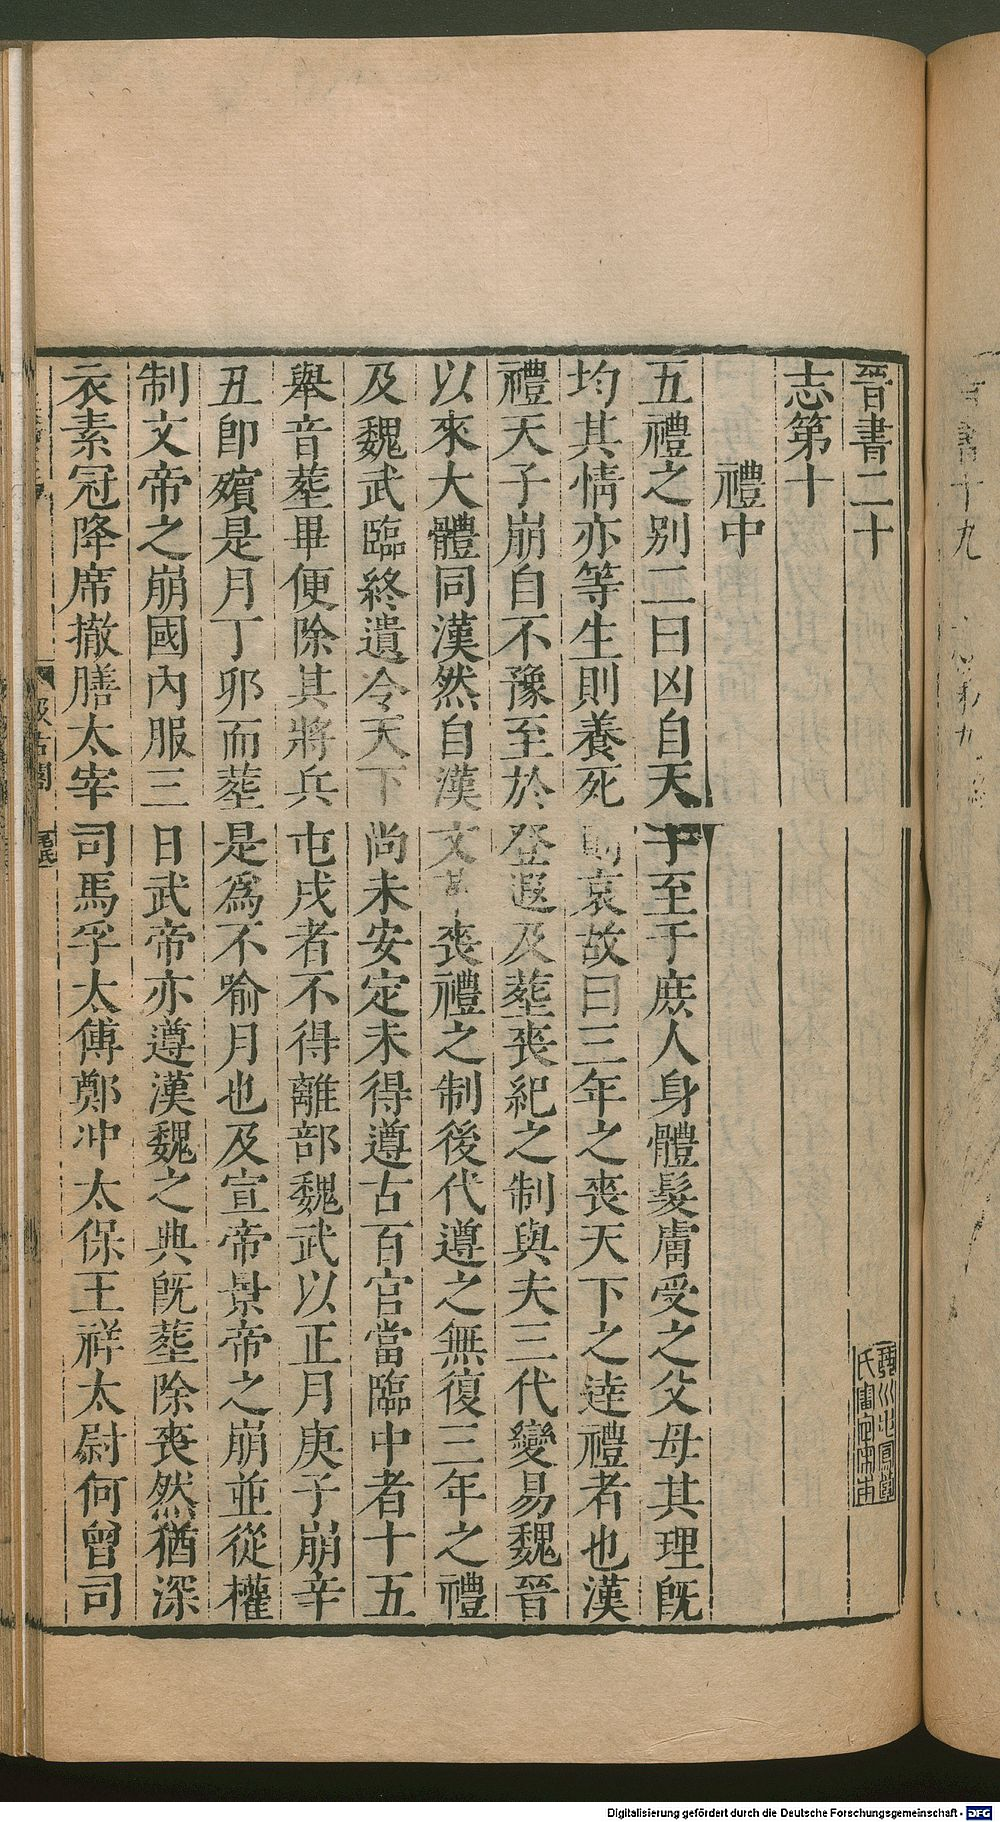 晉書二十
志第十
禮中
五禮之别二曰凶自天子至于庶人身體髮膚受之父母其理旣
均其情亦等生則養死則哀故曰三年之喪天下之逹禮者也漢
禮天子崩自不豫至於登遐及塟喪紀之制與夫三代變易魏晉
以來大體同漢然自漢文革喪禮之制後代遵之無復三年之禮
及魏武臨終遺令天下尚未安定未得遵古百官當臨中者十五
舉音塟畢便除其將兵屯戍者不得離部魏武以正月庚子崩辛
丑卽殯是月丁卯而塟是爲不喻月也及宣帝景帝之崩並從權
制文帝之崩國內服三日武帝亦遵漢魏之典旣塟除喪然猶深
衣素冠降席撤膳太宰司馬孚太傅鄭冲太保王祥太尉何曾司
汲古閣
毛氏
Digitalisierung gefördert durch die Deutsche Forschungsgemeinschaft - DFG